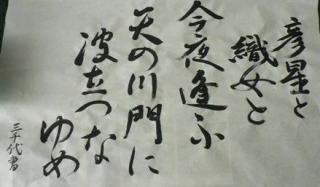 彦星と
織女と
今夜逢ふ
天の川門に
波立つな
ゆめ
三千代書